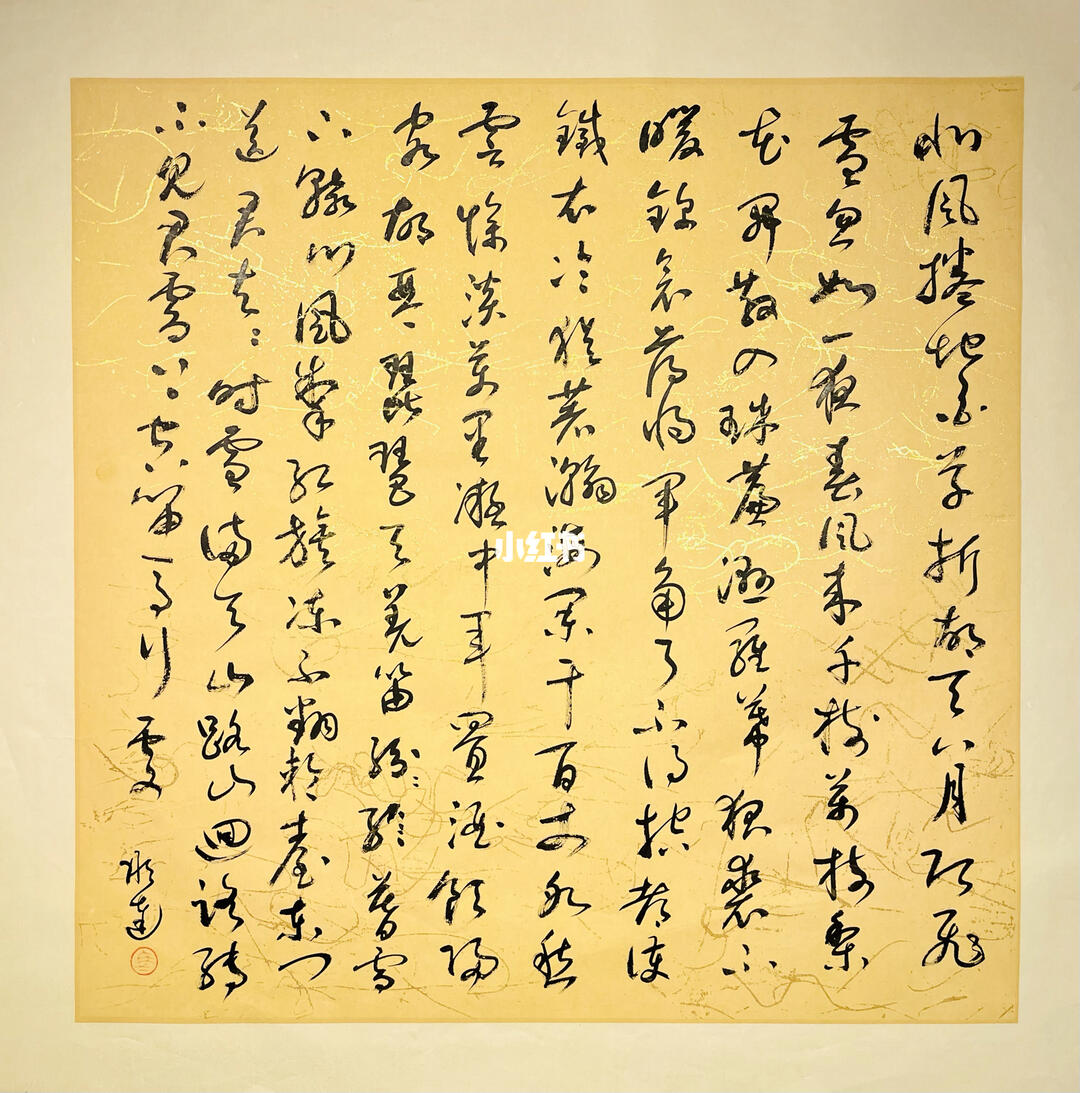 北風捲地白草折胡天八月即飛
雪忽如一夜春風来千樹萬樹梨
花開散入珠簾濕羅幕狐裘不
暖錦衾薄將軍角弓不得控都護
鐵衣冷猶著瀚海闌干百丈冰愁
雲慘淡萬里凝中軍置酒飲歸
客胡琴琵琶与羌笛紛〻暮雪
下轅門風掣紅旗凍不翻輪臺東門
送君去〻時雪滿天山路山迴路轉
不見君雪上空留馬行處
小红书